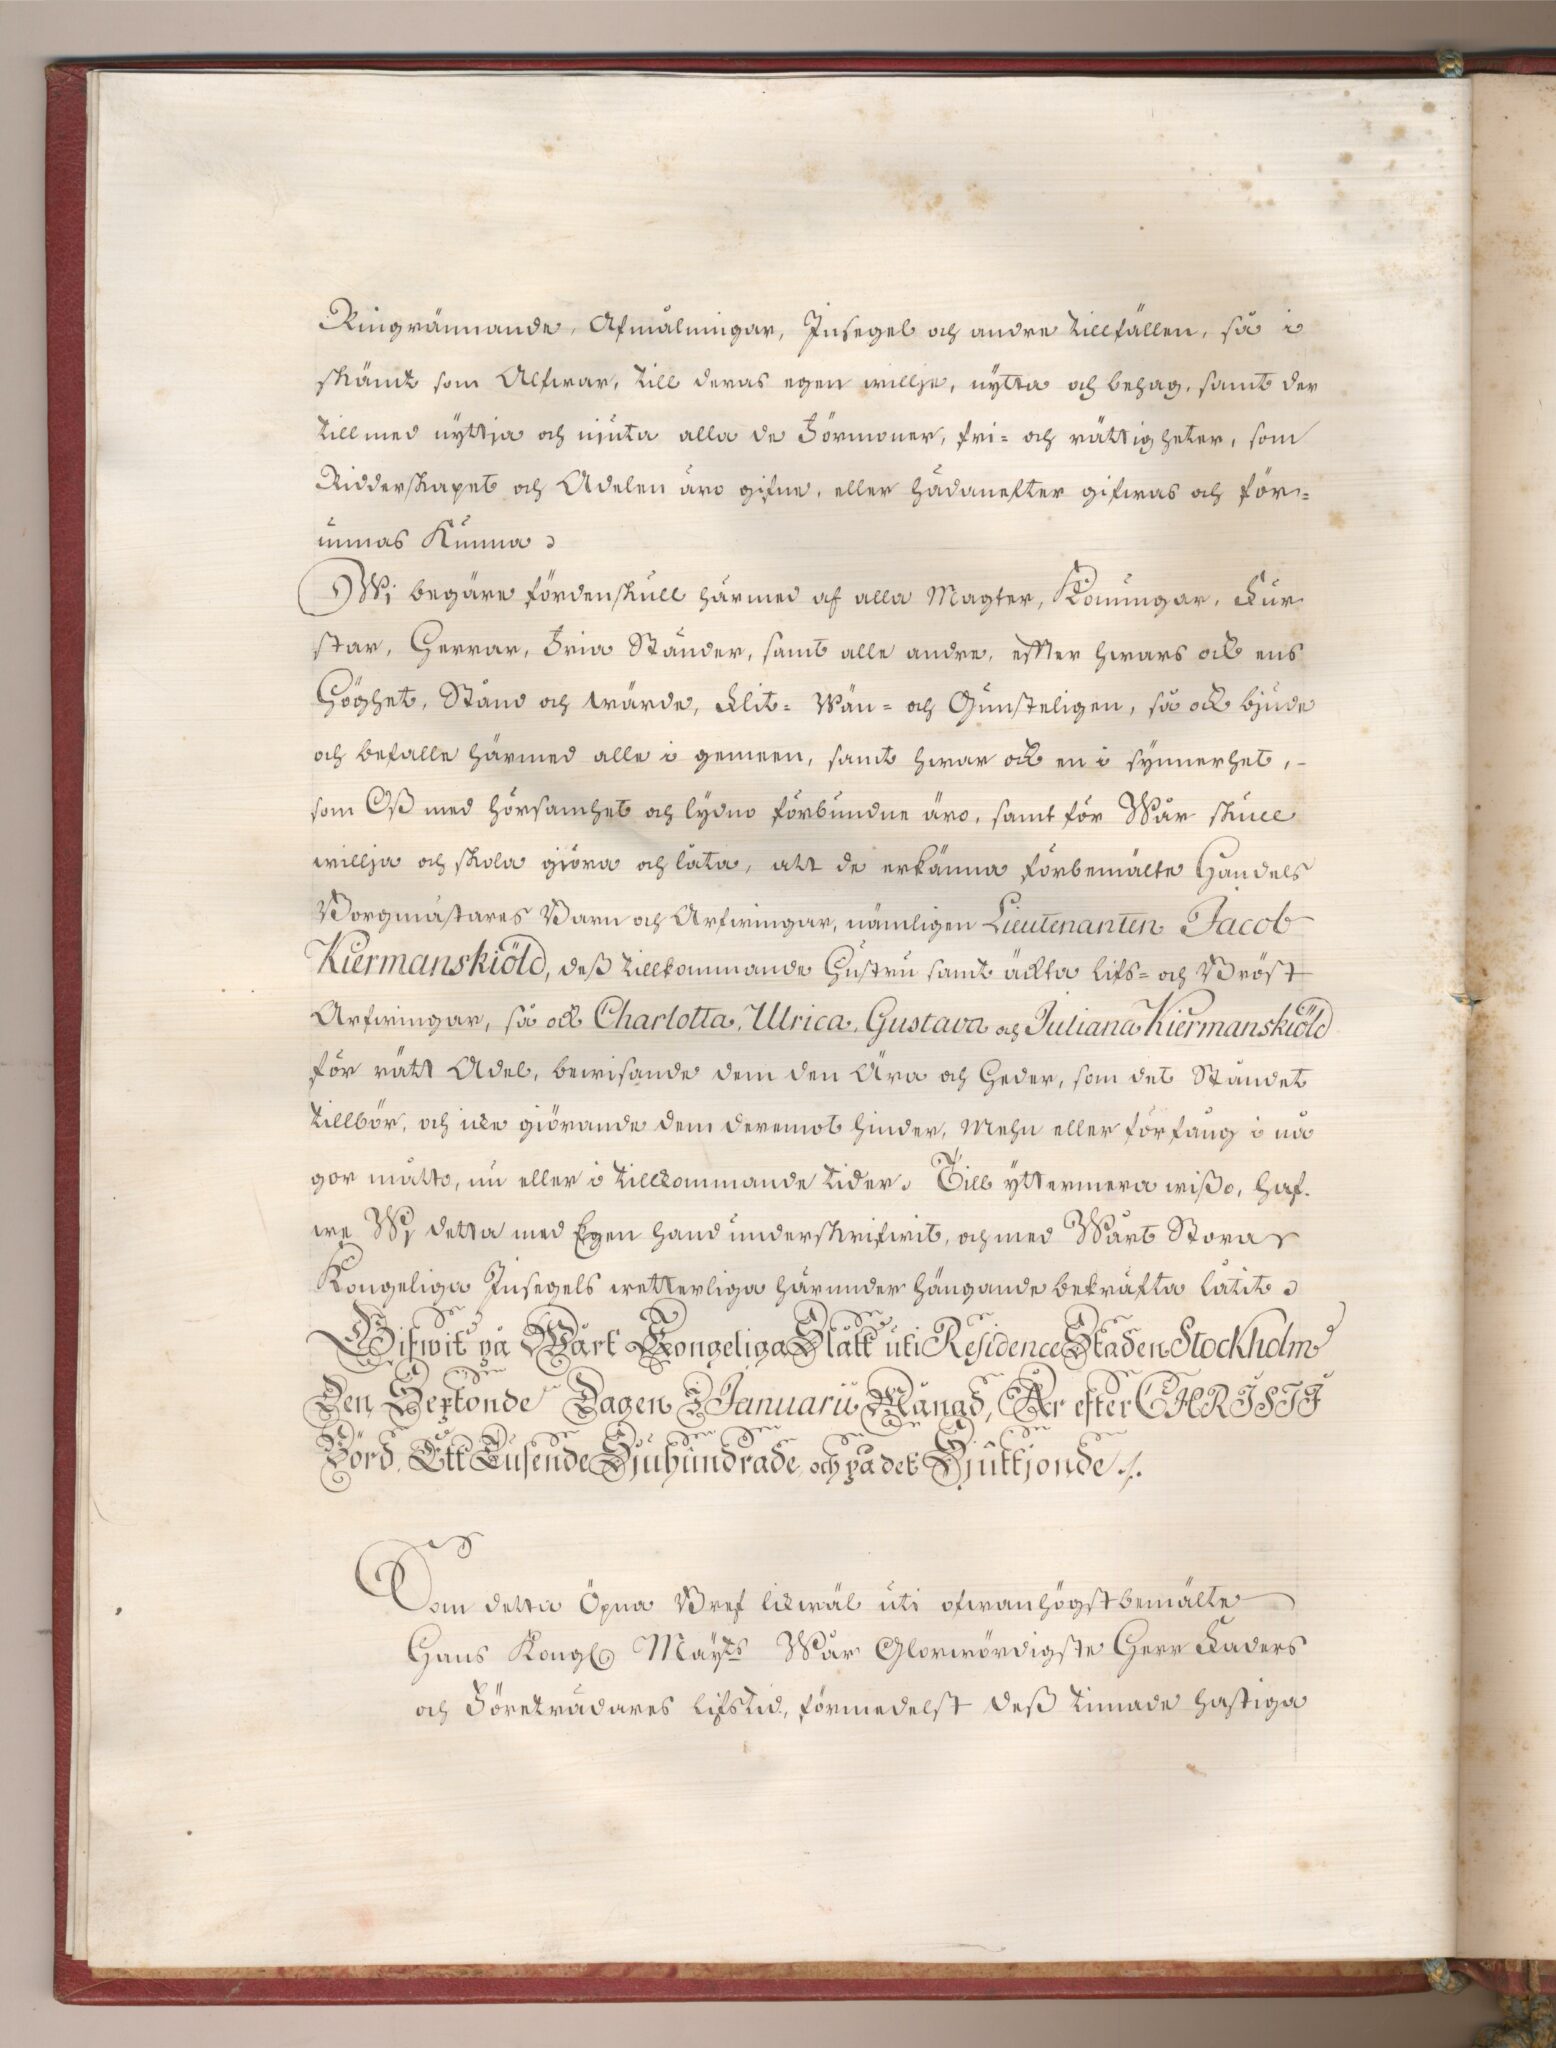 Ringrännande, Afmålningar, Insegel och andre tillfällen, så i
skämt som Alfwar, till deras egen willje, nytta och behag, samt der
till med nyttja och niuta alla de Förmoner, fri= och rättigheter, som
Ridderskapet och Adelen äro gifne, eller hädanefter gifwas och för=
unnas Kunna.
Wi begäre fördenskull härmed af alla Magter, Konungar, Fur
star, Herrar, Fria Ständer, samt alle andre, effter hwars och ens
Höghet, Stånd och wärde, Flit= Wän= och Gunsteligen, så ock bjude
och befalle härmed alle i gemeen, samt hwar och en i synnerhet,
som Oß med hörsamhet och lydno förbundne äro, samt för Wår skull
willja och skola giöra och låta, att de erkänna förbemälte Handels
Borgmästares Barn och Arfwingar, nämligen Lieutenanten Jacob
Kiermanskiöld, deß tillkommande Hustru samt äckta lifs= och Bröst
Arfwingar, så ock Charlotta, Ulrica, Gustava och Juliana Kiermanskiöld
för rätt Adel, bewisande dem den Ära och Heder, som det Ståndet
tillbör, och icke giörande dem deremot hinder, Mehn eller förfång i nå
gor måtto, nu eller i tillkommande tider. Till yttermera wißo, haf.
we Wi detta med Egen hand underskrifwit, och med Wårt Stora
Kongeliga Insegels wetterliga härunder hängande bekräfta låtit.
Gifwit på Wårt Kongeliga Slått uti Residence Staden Stockholm
Den Sextonde Dagen I Januarii Månad, År efter CHRISTI
Börd Ett Tusende Sjuhundrade, och på det Sjuttjonde ./.
Som detta Öpna Bref likwäl uti ofwanhögstbemälte
Hans Kongl Mayts Wår Glorwördigste Herr Faders
och Företrädares lifstid, förmedelst deß timade hastiga